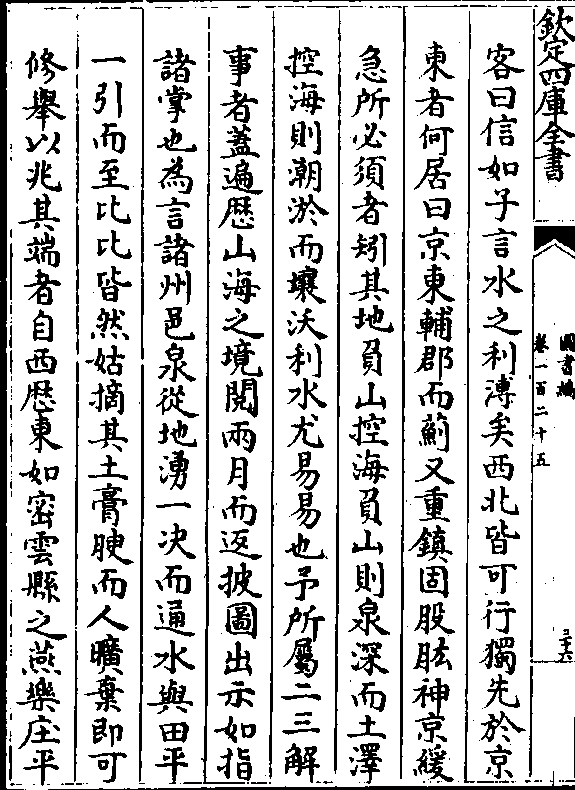 欽定四庫全書
圖書編
卷一百二十五
三十六
客曰信如子言水之利溥矣西北皆可行獨先於京
東者何居曰京東輔郡而薊又重鎮固股肱神京緩
急所必須者矧其地負山控海負山則泉深而土澤
控海則潮淤而壤沃利水尤易易也予所屬二三解
事者蓋遍歴山海之境閱兩月而返披圖出示如指
諸掌也為言諸州邑泉從地湧一决而通水與田平
一引而至比比皆然姑摘其土膏腴而人曠棄即可
修舉以兆其端者自西歴東如密雲縣之燕樂庄平